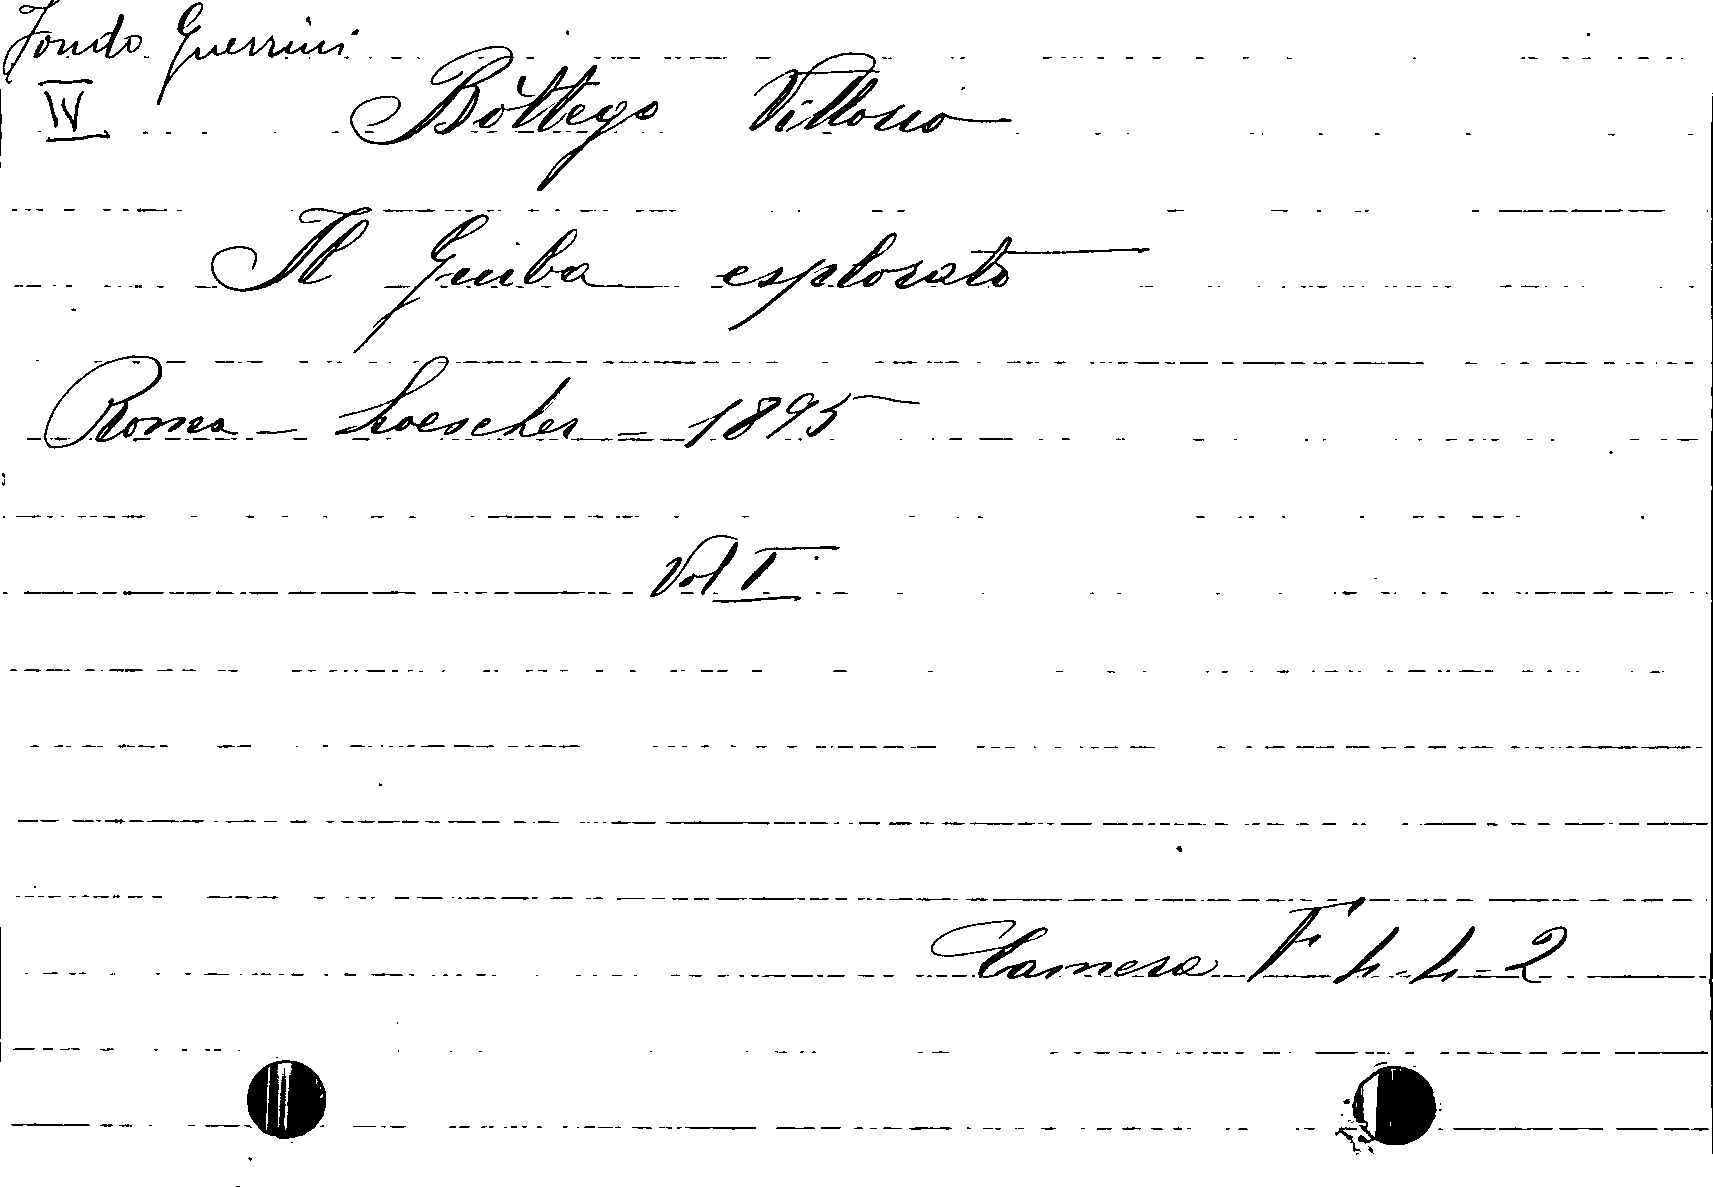 Fondo Guerrini
IV
Bòttego Vittorio
Il Giuba esplorato
Roma - Loescher - 1895
Vol I
Camera F 4-4-2